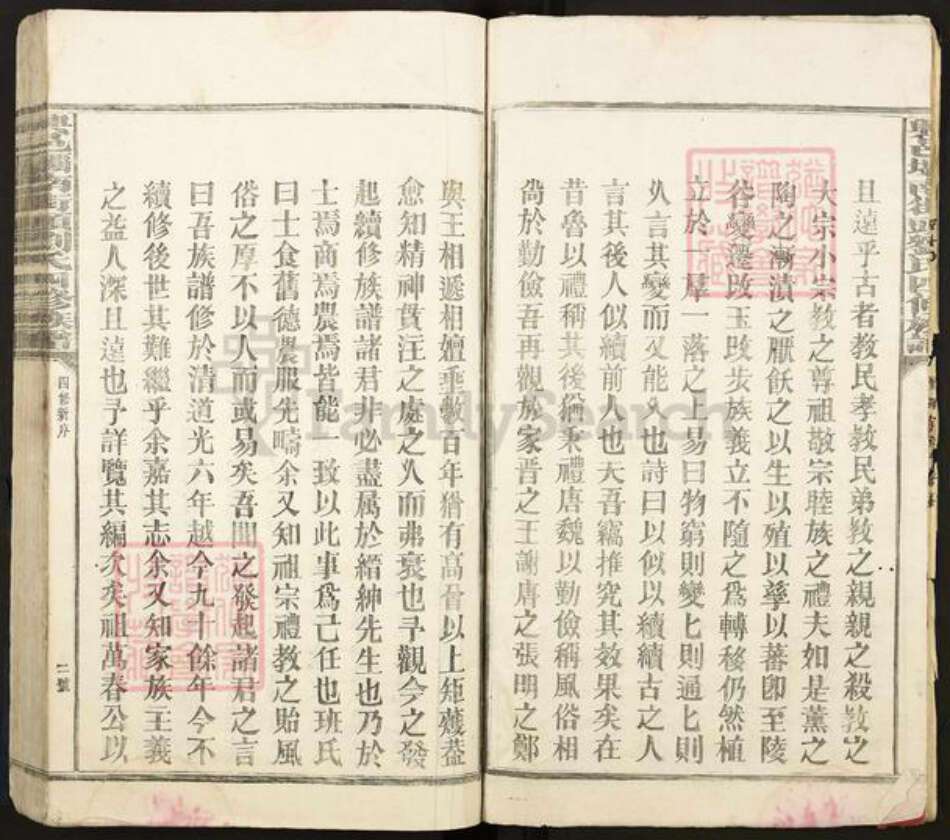 且遠乎古者教民孝教民弟教之親親之殺教之
大宗小宗教之尊祖敬宗睦族之禮夫如是薰之
陶之漸漬之厭飫之以生以殖以孳以蕃卽至陵
谷變遷改玉改步族義立不隨之爲轉移仍然植
立於一羣一落之上易曰物窮則變匕則通匕則
久言其變而又能久也詩曰以似以續續古之人
言其後人似續前人也夫吾竊推究其效果矣在
昔魯以禮稱其後猶秉禮唐魏以勤儉稱風俗相
尙於勤儉吾再觀族家晋之王謝唐之張明之鄭
與王相遞相嬗垂數百年猶有高曾以上矩薉葢
愈知精神貫注之處之久而弗衰也予觀今之發
起續修族譜諸君非必盡属於縉紳先生也乃於
士焉商焉農焉皆能一致以此事爲己任也班氏
曰士食舊德農服先疇余又知祖宗禮教之貽風
俗之厚不以人而或易矣吾聞之發起諸君之言
曰吾族譜修於清道光六年越今九十餘年今不
續修後世其難繼乎余嘉其志余又知家族主義
之益人深且遠也予詳覽其編次矣祖萬春公以
四修新序
二號
FamilySearch